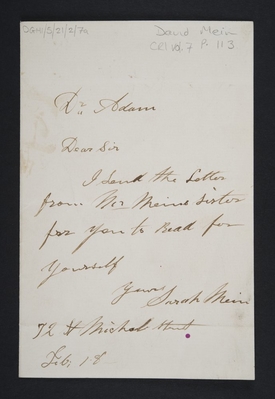 DGH1/5/21/2/7a
David Mein
CRI Vol. 7 P. 113
Dr Adam
Dear Sir
I Send the Letter
from Mr Meins Sister
for you to Read for
yourself
yours
Sarah Mein
72 St Michel
Feb 18